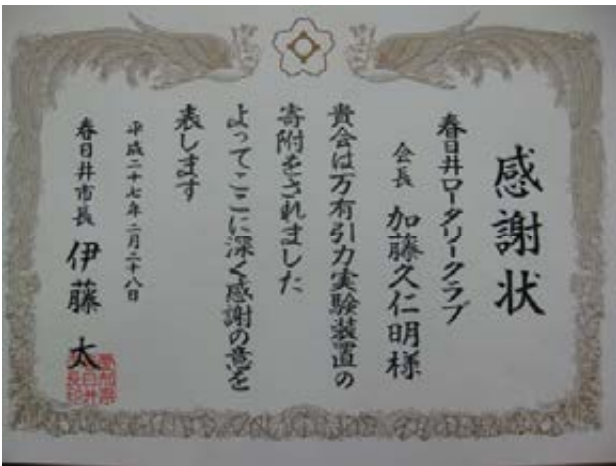 感謝状
春日井ロータリークラブ
会長 加藤久仁明様
貴会は万有引力実験装置の
寄附をされました
よってここに深く感謝の意を
表します
平成二十七年二月二十八日
春日井市長 伊藤太